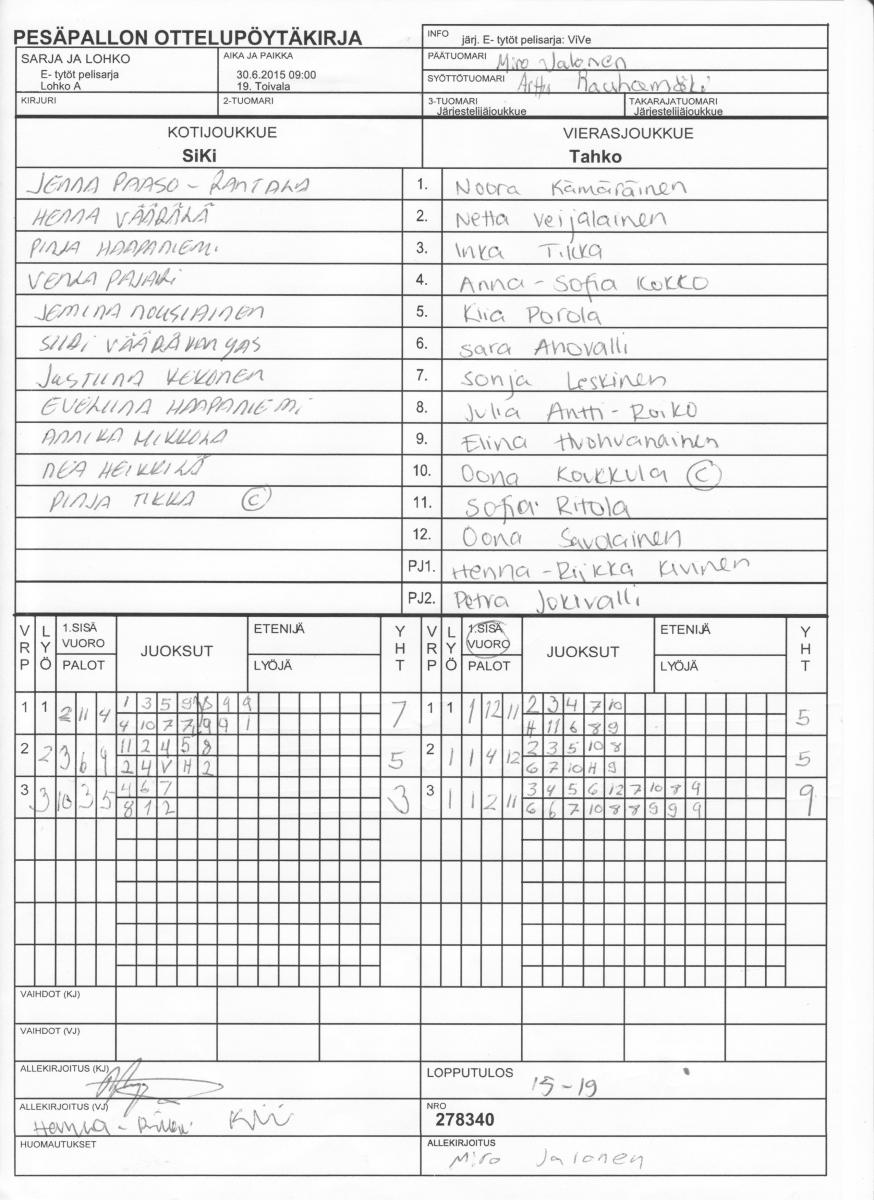 PESÄPALLON OTTELUPÖYTÄKIRJA
INFO järj. E- tytöt pelisarja: ViVe
SARJA JA LOHKO
E- tytöt pelisarja
Lohko A
AIKA JA PAIKKA
30.6.2015 09:00
19. Toivala
PÄÄTUOMARI Miro Jalonen
SYÖTTÖTUOMARI Arttu Rauhamäki
KIRJURI
2-TUOMARI
3-TUOMARI
Järjestelijäjoukkue
TAKARAJATUOMARI
Järjestelijäjoukkue
KOTIJOUKKUE
SiKi
VIERASJOUKKUE
Tahko
JENNA PAASO-RANTALA 1. Noora Kämäräinen
HENNA VÄÄRÄLÄ 2. Netta Veijalainen
PINJA HAAPANIEMI 3. Inka Tikka
VENLA PAJARI 4. Anna-Sofia Kokko
JEMINA NOUSIAINEN 5. Kiia Porola
SIIRI VÄÄRÄKANGAS 6. Sara Ahovalli
JUSTIINA KEKONEN 7. Sonja Leskinen
EVELIINA HAAPANIEMI 8. Julia Antti-Roiko
ANNIKA MIKKOLA 9. Elina Huohvanainen
NEA HEIKKILÄ 10. Oona Koukkula C
PINJA TIKKA C 11. Sofia Ritola
12. Oona Savolainen
PJ1. Henna-Riikka Kivinen
PJ2. Petra Jokivalli
VRP LYÖ 1.SISÄ VUORO PALOT JUOKSUT ETENIJÄ LYÖJÄ YHT VRP LYÖ 1.SISÄ VUORO PALOT JUOKSUT ETENIJÄ LYÖJÄ YHT
1 1 2 11 4 1 3 5 9 8 9 9 7 1 1 1 12 11 2 3 4 7 10 5
4 10 7 7 9 9 1 H 11 6 8 9
2 2 3 6 9 11 2 4 5 8 5 2 1 1 4 12 2 3 5 10 8 5
2 4 V H 2 6 7 10 H 9
3 3 10 3 5 4 6 7 3 3 1 1 2 11 3 4 5 6 12 7 10 8 9 9
8 1 2 6 6 7 10 8 8 9 9 9
VAIHDOT (KJ)
VAIHDOT (VJ)
ALLEKIRJOITUS (KJ)
LOPPUTULOS 15-19
ALLEKIRJOITUS (VJ) Henna-
NRO
278340
HUOMAUTUKSET
ALLEKIRJOITUS
Miro Jalonen